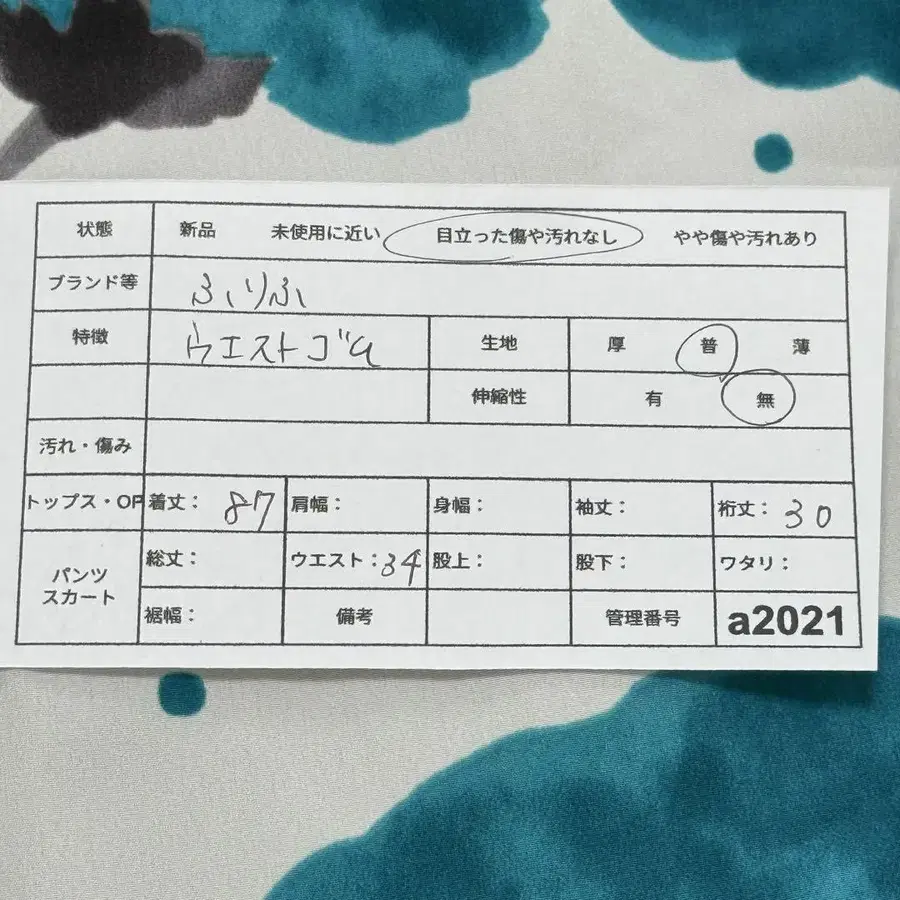 状態 新品 未使用に近い 目立った傷や汚れなし やや傷や汚れあり
ブランド等 ふりふ
特徴 ウエストゴム 生地 厚 普 薄
伸縮性 有 無
汚れ・傷み
トップス・OP 着丈： 87 肩幅： 身幅： 袖丈： 裄丈： 30
パンツ スカート 総丈： ウエスト： 34 股上： 股下： ワタリ：
裾幅： 備考 管理番号 a2021